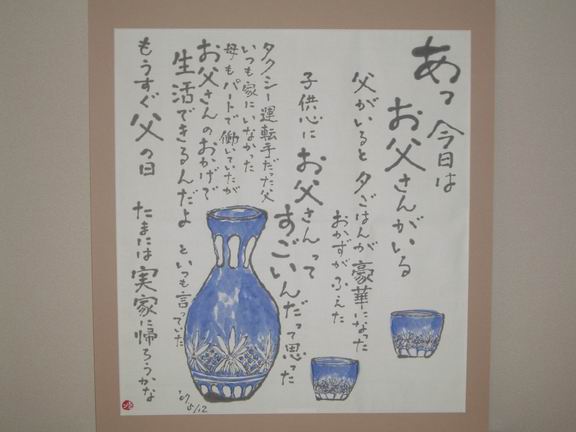 あっ今日は
お父さんがいる
父がいると夕ごはんが豪華になった
おかずがふえた
子供心にお父さんって
すごいんだって思ってた
タクシー運転手だった父
いつも家にいなかった
母もパートで働いていたが
お父さんのおかげで
生活できるんだよ といつも言っていた
もうすぐ父の日 たまには実家に帰ろうかな
'07 5/12